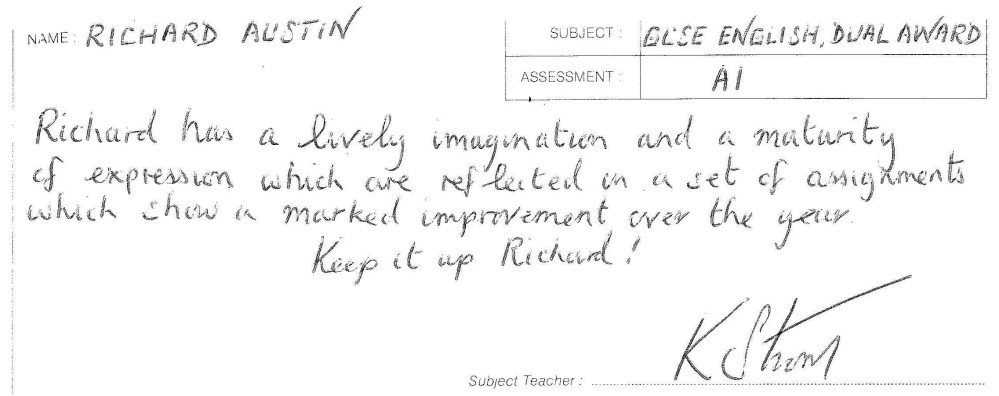 NAME: RICHARD AUSTIN
SUBJECT: GCSE ENGLISH, DUAL AWARD
ASSESSMENT: A1
Richard has a lively imagination and a maturity
of expression which are reflected in a set of assignments
which show a marked improvement over the year.
Keep it up Richard!
Subject Teacher: K